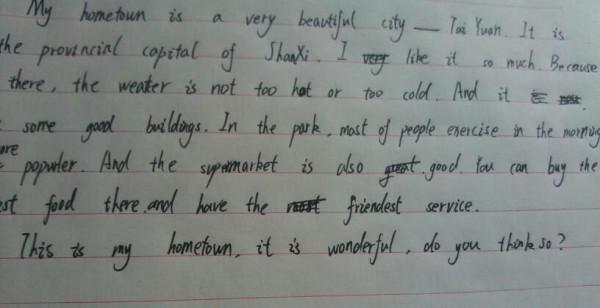 My hometown is a very beautiful city — Tai Yuan. It is
the provincial capital of ShanXi. I very like it so much. Because
there, the weater is not too hot or too cold. And it
some good buildings. In the park, most of people exercise in the morning
are popwler. And the supermarket is also great good. You can buy the
est food there. and have the friendest service.
This is my hometown, it is wonderful, do you think so?